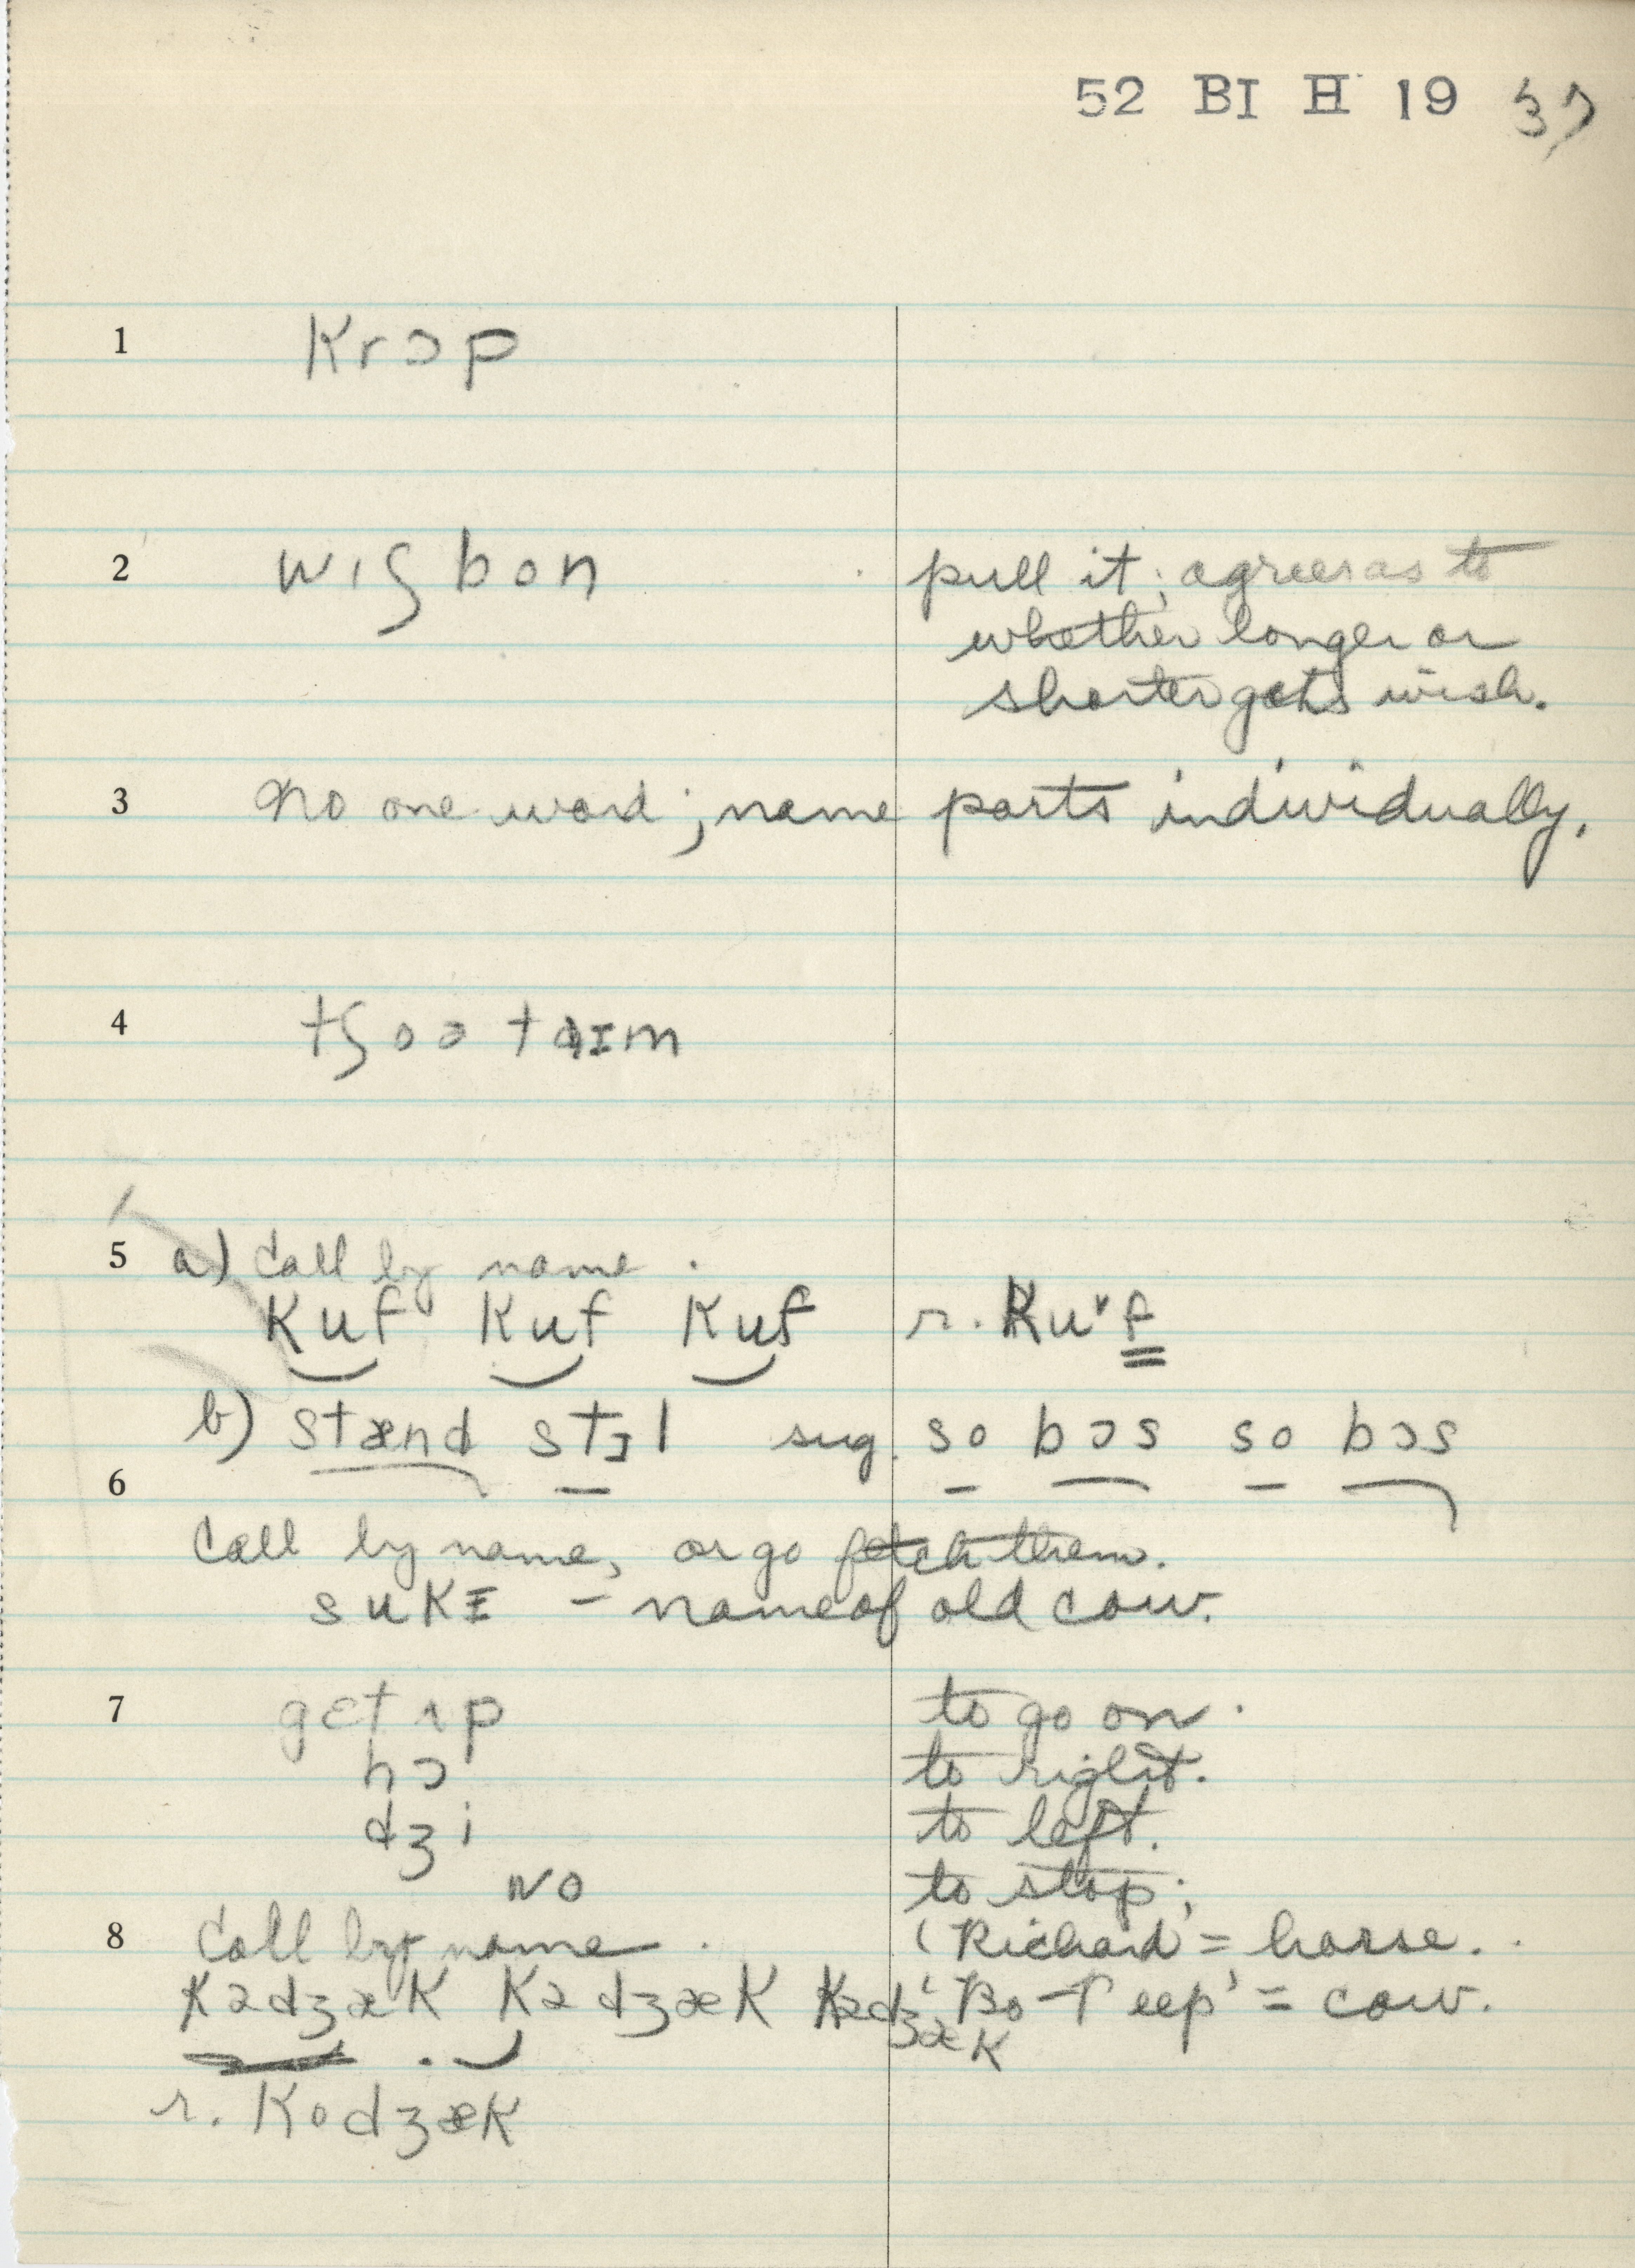 52 BI H 19 37
1 krɔp
2 wɪʃbon pull it; agree as to
whether longer or
shorter gets wish.
3 No one word; name parts individually.
4 tʃoə taɪm
5 a) Call by name.
kuf kuf kuf r. kuˑf
b) stænd stɪl sug. so bɔs so bɔs
6
Call by name, or go fetch them.
sukɪ – name of old cow.
7 gɛt ʌp to go on.
hɔ to right.
dʒi to left.
wo to stop;
8 Call by name. 'Richard' = horse.
kədʒæk kədʒæk kədʒæk 'Bo-Peep' = cow.
r. kodʒæk